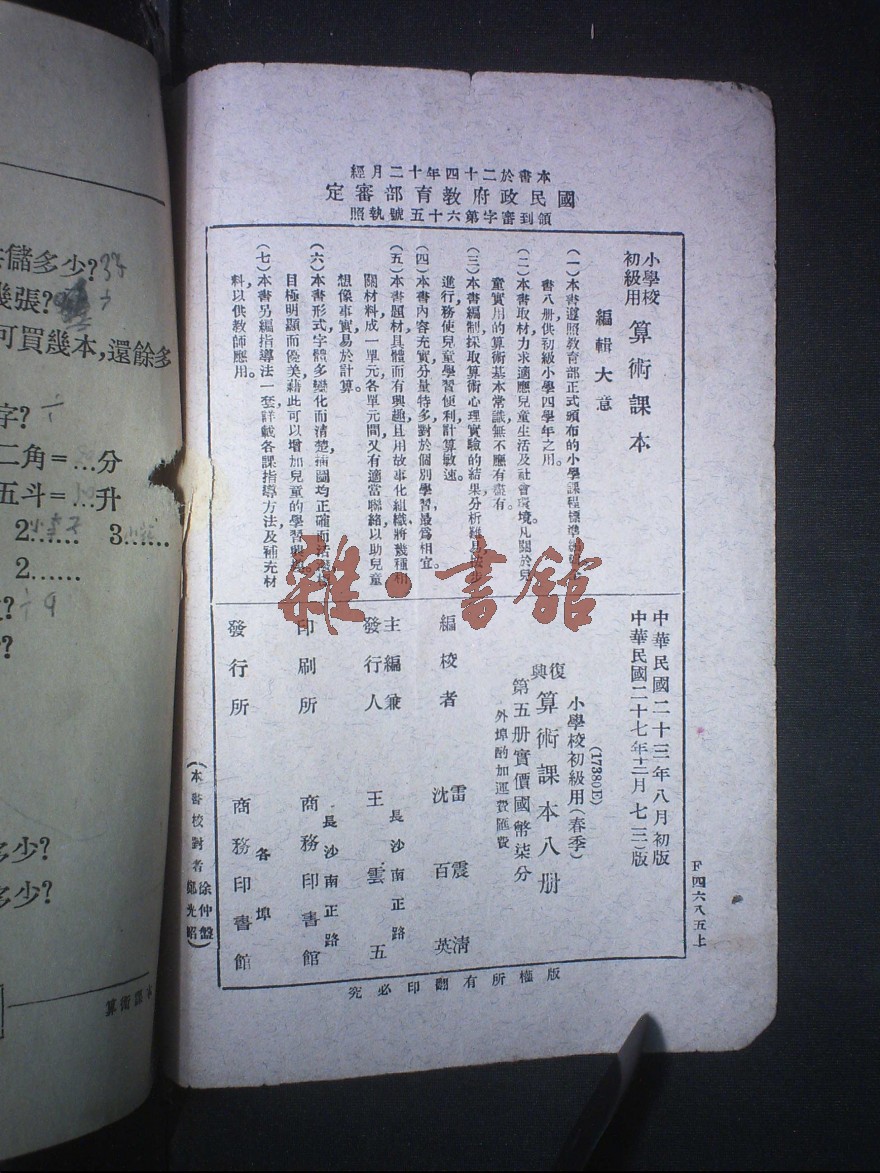 本書於二十四年十二月經
國民政府教育部審定
領到審字第六十五號執照
小學校
初級用
算術課本
編輯大意
(一)本書遵照教育部正式頒布的小學課程標準
書八册,供初級小學四學年之用。
(二)本書取材力求適應兒童生活及社會環境。凡關於兒
童實用的算術基本常識,無不應有盡有。
(三)本書編制,採取算術心理實驗的結果,分析難易,
進行,務使兒童學習便利,計算敏速。
(四)本書內容充實,分量特多,對於個別學習,最爲相宜。
(五)本書題材,具體而有興趣,且用故事化組織,將幾種相
關材料,成一單元,各單元間又有適當聯絡,以助兒童
想像事實,易於計算。
(六)本書形式,字體多變化而清楚,插圖均正確而活潑,
目極明顯而優美,藉此可以增加兒童的學習興趣。
(七)本書另編指導法一套,詳載各課指導方法及補充材
料,以供教師應用。
中華民國二十三年八月初版
中華民國二十七年十二月七三版
(17380E)
小學校初級用(春季)
復興
算術課本八册
第五册實價國幣柒分
外埠酌加運費匯費
編校者
雷震清
沈百英
主編兼
發行人
長沙南正路
王雲五
印刷所
長沙南正路
商務印書館
發行所
各埠
商務印書館
(本書校對者
徐仲盤
鄭光昭)
版權所有翻印必究
F四六八五上
雜·書館
儲多少?
幾張?
可買幾本,還餘多
字?
二角=…分
五斗=…升
2…… 3……
2……
?
?
多少?
多少?
算術課本